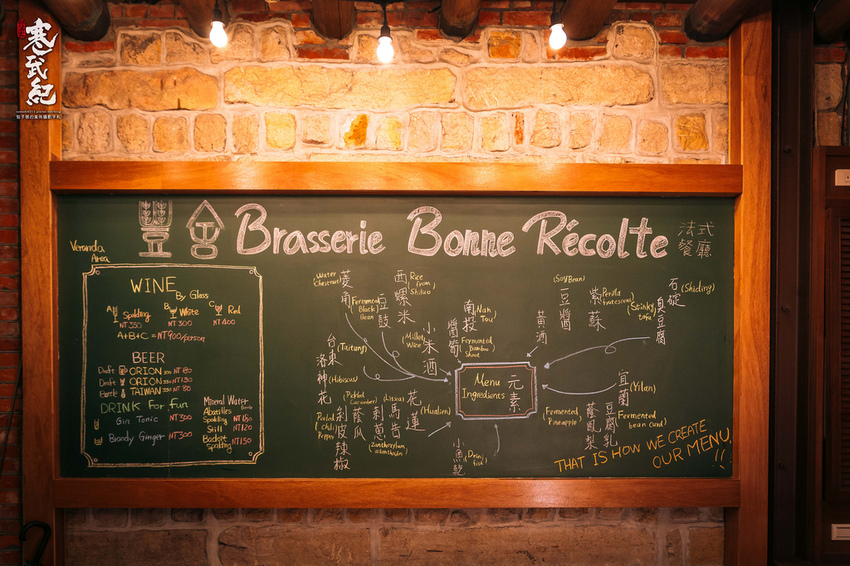 寒武紀
Brasserie Bonne Récolte
法式
餐廳
Veranda
Area
WINE
By Glass
A
B White
C Red
NT 350
NT 300
NT 400
A+B+C = NT 900/person
BEER
Draft ORION
Draft ORION
Bottle TAIWAN
DRINK For fun
Gin Tonic NT 300
Brandy Ginger NT 300
Mineral Water
Still
NT 120
NT 150
Water
Chestnut
菱角
Fermented
Black
Bean
豆鼓
西螺米
Rice
from
小米酒
(Millet
Wine)
南投
Nan
Tou
醬筍
Fermented
Bamboo
Shoot
(Soy Bean)
豆醬
黃酒
紫蘇
Perilla
frutescens
石碇
(Shiding)
(Stinky
tofu)
臭豆腐
台東
(Taitung)
洛神花
(Hibiscus)
剝皮辣椒
Peeled
Chili
Pepper
(Pickled
Cucumber)
蔭瓜
刺蔥
(Zanthoxylum
ailanthoides)
馬告
(Litsea)
花蓮
(Hualien)
小魚乾
Menu
Ingredients
元素
宜蘭
(Yilan)
(Fermented
Pineapple)
蔭鳳梨
豆腐乳
Fermented
bean curd
THAT IS HOW WE CREATE
OUR MENU!!